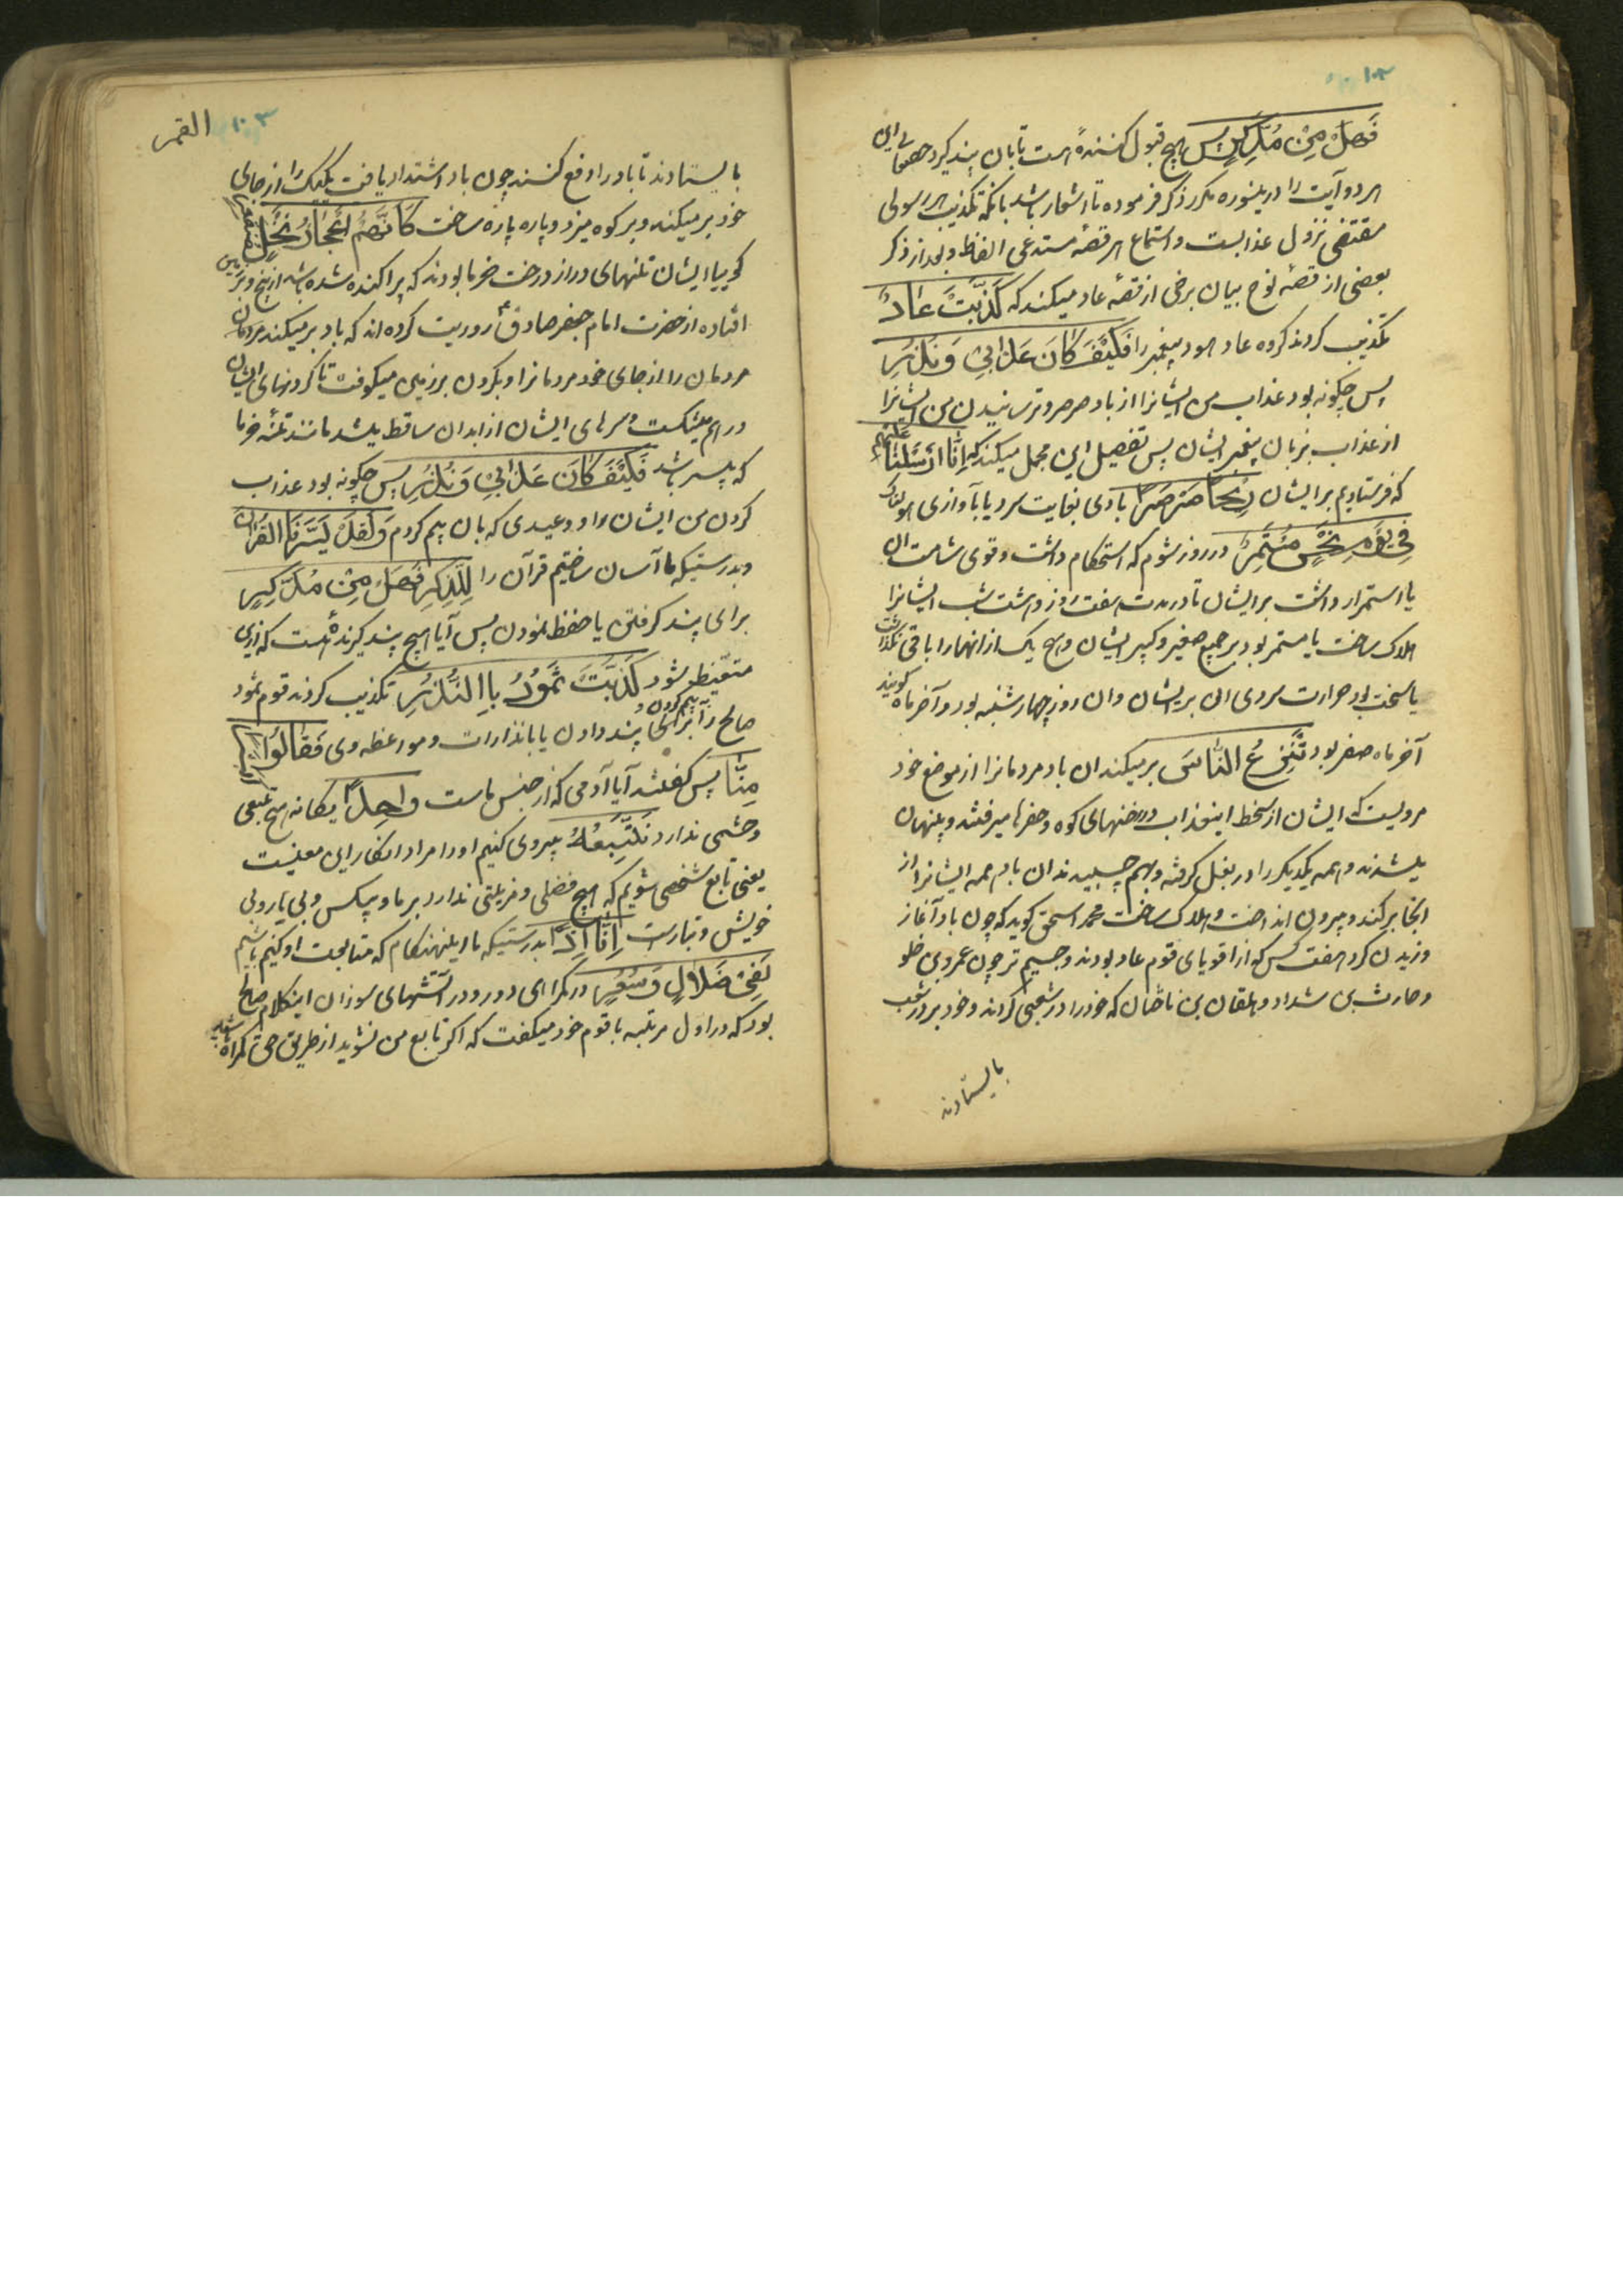 ۱۰۲
فَهَلْ مِنْ مُدَّكِرٍ پس هیچ قبول کنندهٔ هست تا بان پند گیرد حقتعالی این
هر دو آیت را درینسوره مکرر ذکر فرموده تا اشعار باشد بانکه تکذیب هر رسولی
مقتضی نزول عذابست و استماع هر قصه مستدعی اتعاظ و بعد از ذکر
بعضی از قصهٔ نوح بیان برخی از قصهٔ عاد میکند که كَذَّبَتْ عَادٌ
تکذیب کردند کروه عاد هود پیغمبر را فَكَيْفَ كَانَ عَذَابِي وَنُذُرِ
پس چکونه بود عذاب من ایشانرا از باد صرصر و ترسانیدن من ایشانرا
از عذاب بزبان پیغمبر ایشان پس تفصیل این مجمل میکند که اِنَّا اَرْسَلْنَا عَلَيْهِمْ
که فرستادیم بر ایشان رِيحًا صَرْصَرًا بادی بغایت سرد یا باآوازی هولناک
فِي يَوْمِ نَحْسٍ مُسْتَمِرٍّ در روز شوم که استحکام داشت و قوی شامت ان
یا استمرار داشت بر ایشان تا در مدت هفت روز و هشت شب ایشانرا
هلاک ساخت یا مستمر بود بر جمیع صغیر و کبیر ایشان و هیچ یک از انهارا باقی نکذاشت
یا سخت بود حرارت سردی ان بر ایشان وان روز چهارشنبه بود و آخر ماه کویند
آخر ماه صفر بود تَنْزِعُ النَّاسَ بر میکند ان باد مردمانرا از موضع خود
مرویست که ایشان از سخط اینعذاب در رخنهای کوه و حفرها میرفتند و پنهان
میشدند و همه یکدیکر را در بغل کرفته و بهم چسبیدند ان باد همه ایشانرا از
انجا بر کند و بیرون انداخت و هلاک ساخت محمد اسحق کوید که چون باد آغاز
وزیدن کرد هفت کس که از اقویای قوم عاد بودند و جسیم تر چون عمرو بن خلو
و حارث بن شداد و هلقان بن که خود را در شعبی کردند و خود بر در شعب
بایستادند
۱۰۳ القمر
بایستادند تا باد را دفع کنند چون باد اشتداد یافت یکیک را از جای
خود بر میکند و بر کوه میزد و پاره پاره ساخت كَاَنَّهُمْ اَعْجَازُ نَخْلٍ مُنْقَعِرٍ
کوییا ایشان تنهای دراز درخت خرما بودند که پراکنده شده باشد از بیخ و بر زمین
افتاده از حضرت امام جعفر صادق ع روریت کرده اند که باد بر میکند مردمان
مردمان را از جای خود مردمانرا و بکردن بر زمین میکوفت تا کردنهای ایشان
در هم میشکست و سرهای ایشان از ابدان ساقط میشد مانند تنه خرما
که بی سر باشد فَكَيْفَ كَانَ عَذَابِي وَنُذُرِ پس چکونه بود عذاب
کردن من ایشان را و وعیدی که بان بیم کردم وَلَقَدْ يَسَّرْنَا الْقُرْاٰنَ
و بدرستیکه ما آسان ساختیم قرآن را لِلذِّكْرِ فَهَلْ مِنْ مُدَّكِرٍ
برای پند کرفتن یا حفظ نمودن پس آیا هیچ پند کیرندهٔ هست که ازین
متعظ شود كَذَّبَتْ ثَمُودُ بِالنُّذُرِ تکذیب کردند قوم ثمود
صالح را ببیم کردن و پند دادن یا بانذارات و موعظه وی فَقَالُوا اَبَشَرًا
مِنَّا پس کفتند آیا آدمی که از جنس ماست وَاحِدًا یکانه هیچ تبعی
و حشمی ندارد نَتَّبِعُهُ پیروی کنیم اورا مراد انکار این معنیست
یعنی تابع شخصی شویم که هیچ فضلی و مزیتی ندارد بر ما و بیکس و بی یار و بی
خویش و تبارست اِنَّا اِذًا بدرستیکه ما اینهنکام که متابعت او کنیم باشیم
لَفِي ضَلَالٍ وَسُعُرٍ در کمراهی دور و در آتشهای سوزان اینکلام صالح
بود که در اول مرتبه با قوم خود میکفت که اکر تابع من نشوید از طریق حق کمراه شوید